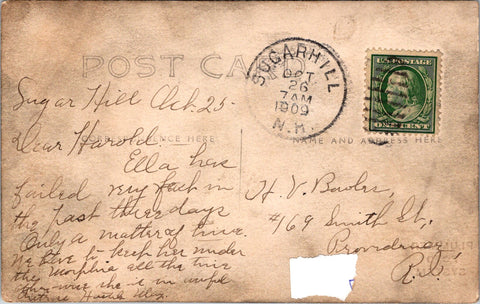 POST CARD
SUGAR HILL
OCT
26
7 AM
1909
N.H.
U.S. POSTAGE
ONE CENT
Sugar Hill Oct. 25-
CORRESPONDENCE HERE
NAME AND ADDRESS HERE
Dear Harold.
Ella has
failed very fast in
the past three days
Only a matter of time.
We have to keep her under
the morphia all the time
she is in awful
Home
H. V. Bowles,
#169 Smith St,
Providence
R.I.